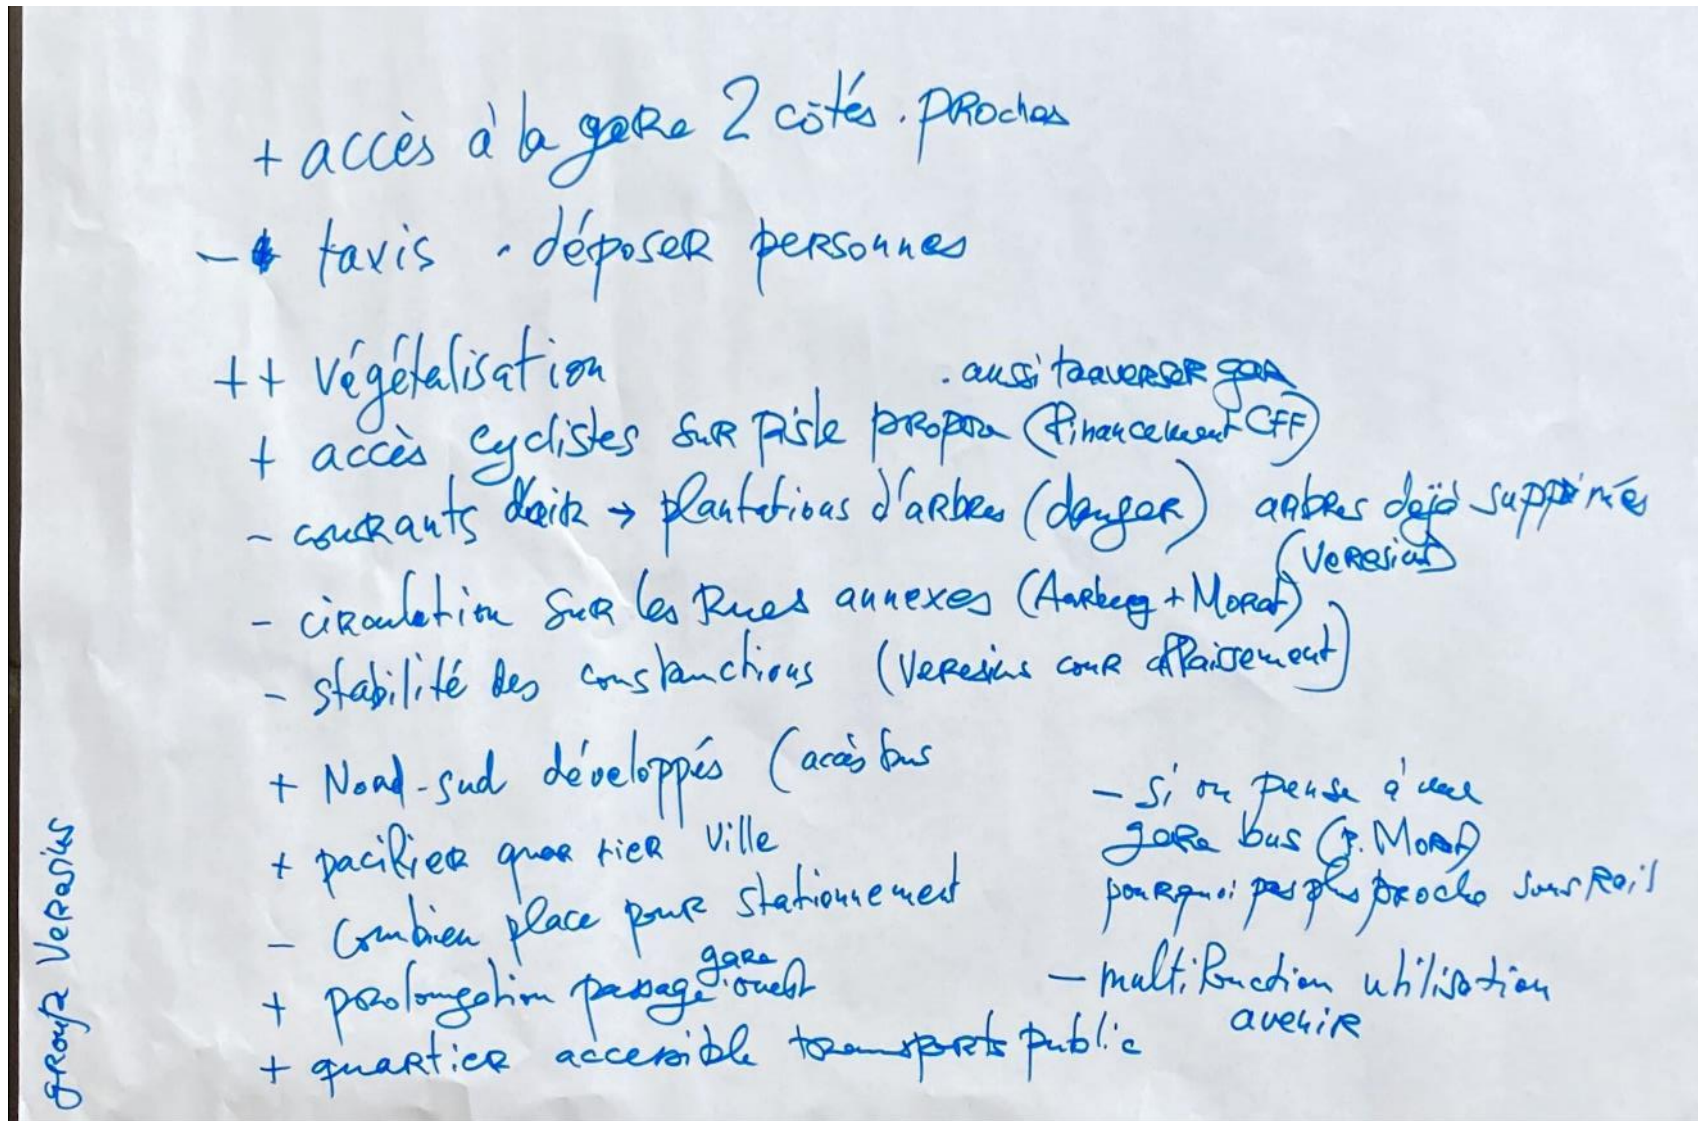 + accès à la gare 2 côtés. proches
- taxis · déposer personnes
++ végétalisation
· aussi traverser gare
+ accès cyclistes sur piste propre (financement CFF)
- courants d'air → plantations d'arbres (danger) arbres déjà supprimés
(Veresius)
- circulation sur les Rues annexes (Aarberg + Morat)
- stabilité des constructions (Veresius cour affaissement)
+ Nord-sud développés (accès bus
+ pacifier quartier ville
- Combien place pour stationnement
+ prolongation passage gare ouest
+ quartier accessible transports public
- si on pense à une
gare bus (p. Morat)
pourquoi pas plus proche sous Rail
- multifunction utilisation
avenir
groupe Veresius